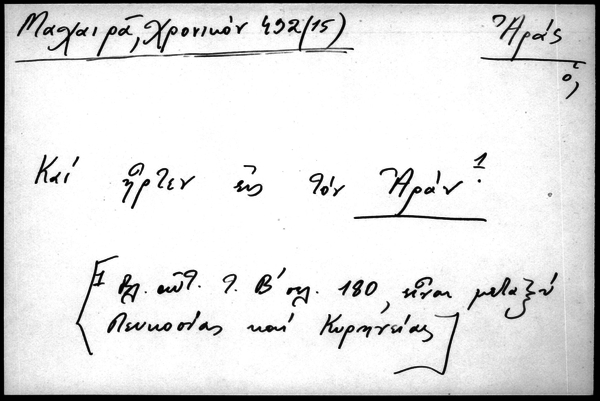 Μαχαιρᾶ, Χρονικόν 492(15)
Ἀράς
ὁ,
Καί ἦρτεν εἰς τόν Ἀράν¹·
[1 Βλ. αὐτ. τ. Β' σελ. 180, εἶναι μεταξύ
Λευκοσίας καί Κυρηνείας]